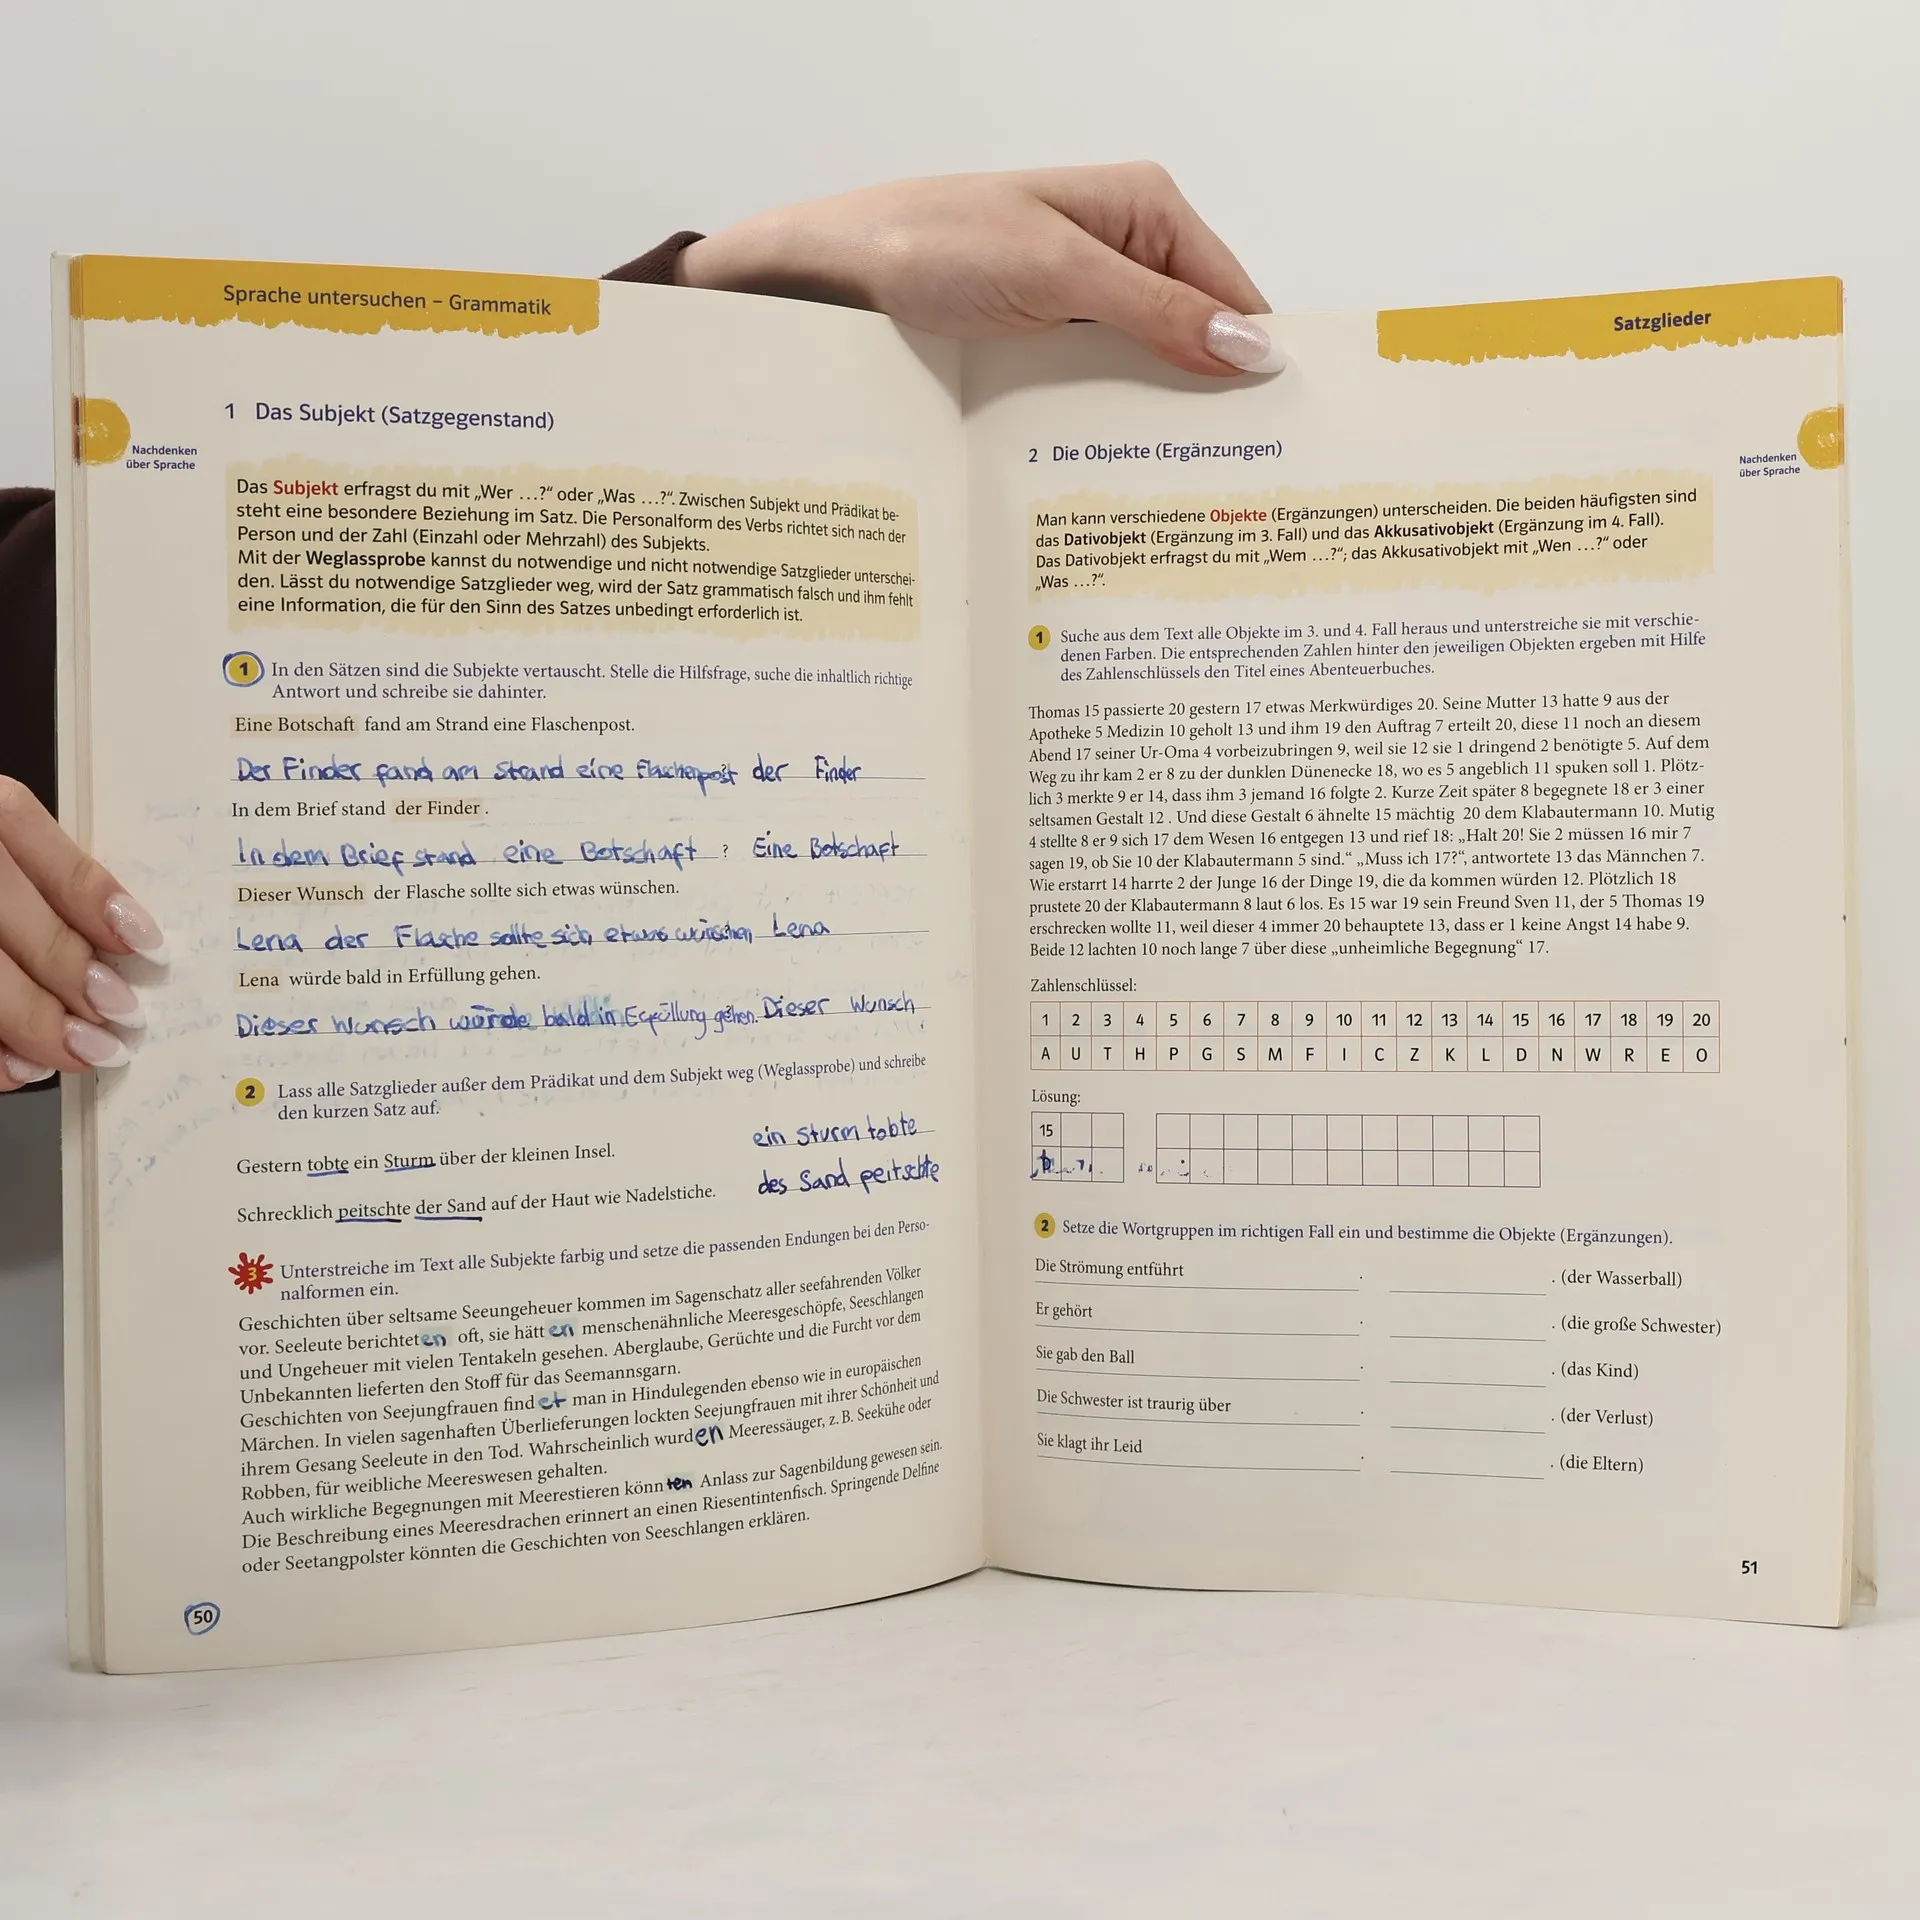 Sprache untersuchen – Grammatik
1 Das Subjekt (Satzgegenstand)
Nachdenken
über Sprache
Das Subjekt erfragst du mit „Wer …?“ oder „Was …?“. Zwischen Subjekt und Prädikat be-
steht eine besondere Beziehung im Satz. Die Personalform des Verbs richtet sich nach der
Person und der Zahl (Einzahl oder Mehrzahl) des Subjekts.
Mit der Weglassprobe kannst du notwendige und nicht notwendige Satzglieder unterschei-
den. Lässt du notwendige Satzglieder weg, wird der Satz grammatisch falsch und ihm fehlt
eine Information, die für den Sinn des Satzes unbedingt erforderlich ist.
1 In den Sätzen sind die Subjekte vertauscht. Stelle die Hilfsfrage, suche die inhaltlich richtige
Antwort und schreibe sie dahinter.
Eine Botschaft fand am Strand eine Flaschenpost.
Der Finder fand am Strand eine Flaschenpost der Finder
In dem Brief stand der Finder.
In dem Brief stand eine Botschaft ? Eine Botschaft
Dieser Wunsch der Flasche sollte sich etwas wünschen.
Lena der Flasche sollte sich etwas wünschen Lena
Lena würde bald in Erfüllung gehen.
Dieser Wunsch würde bald in Erfüllung gehen. Dieser Wunsch
2 Lass alle Satzglieder außer dem Prädikat und dem Subjekt weg (Weglassprobe) und schreibe
den kurzen Satz auf.
Gestern tobte ein Sturm über der kleinen Insel. ein Sturm tobte
Schrecklich peitschte der Sand auf der Haut wie Nadelstiche. des Sand peitschte
3 Unterstreiche im Text alle Subjekte farbig und setze die passenden Endungen bei den Perso-
nalformen ein.
Geschichten über seltsame Seeungeheuer kommen im Sagenschatz aller seefahrenden Völker
vor. Seeleute berichteten oft, sie hätten menschenähnliche Meeresgeschöpfe, Seeschlangen
und Ungeheuer mit vielen Tentakeln gesehen. Aberglaube, Gerüchte und die Furcht vor dem
Unbekannten lieferten den Stoff für das Seemannsgarn.
Geschichten von Seejungfrauen findet man in Hindulegenden ebenso wie in europäischen
Märchen. In vielen sagenhaften Überlieferungen lockten Seejungfrauen mit ihrer Schönheit und
ihrem Gesang Seeleute in den Tod. Wahrscheinlich wurden Meeressäuger, z. B. Seekühe oder
Robben, für weibliche Meereswesen gehalten.
Auch wirkliche Begegnungen mit Meerestieren könnten Anlass zur Sagenbildung gewesen sein.
Die Beschreibung eines Meeresdrachen erinnert an einen Riesentintenfisch. Springende Delfine
oder Seetangpolster könnten die Geschichten von Seeschlangen erklären.
50
Satzglieder
2 Die Objekte (Ergänzungen)
Nachdenken
über Sprache
Man kann verschiedene Objekte (Ergänzungen) unterscheiden. Die beiden häufigsten sind
das Dativobjekt (Ergänzung im 3. Fall) und das Akkusativobjekt (Ergänzung im 4. Fall).
Das Dativobjekt erfragst du mit „Wem …?“; das Akkusativobjekt mit „Wen …?“ oder
„Was …?“.
1 Suche aus dem Text alle Objekte im 3. und 4. Fall heraus und unterstreiche sie mit verschie-
denen Farben. Die entsprechenden Zahlen hinter den jeweiligen Objekten ergeben mit Hilfe
des Zahlenschlüssels den Titel eines Abenteuerbuches.
Thomas 15 passierte 20 gestern 17 etwas Merkwürdiges 20. Seine Mutter 13 hatte 9 aus der
Apotheke 5 Medizin 10 geholt 13 und ihm 19 den Auftrag 7 erteilt 20, diese 11 noch an diesem
Abend 17 seiner Ur-Oma 4 vorbeizubringen 9, weil sie 12 sie 1 dringend 2 benötigte 5. Auf dem
Weg zu ihr kam 2 er 8 zu der dunklen Dünenecke 18, wo es 5 angeblich 11 spuken soll 1. Plötz-
lich 3 merkte 9 er 14, dass ihm 3 jemand 16 folgte 2. Kurze Zeit später 8 begegnete 18 er 3 einer
seltsamen Gestalt 12 . Und diese Gestalt 6 ähnelte 15 mächtig 20 dem Klabautermann 10. Mutig
4 stellte 8 er 9 sich 17 dem Wesen 16 entgegen 13 und rief 18: „Halt 20! Sie 2 müssen 16 mir 7
sagen 19, ob Sie 10 der Klabautermann 5 sind.“ „Muss ich 17?“, antwortete 13 das Männchen 7.
Wie erstarrt 14 harrte 2 der Junge 16 der Dinge 19, die da kommen würden 12. Plötzlich 18
prustete 20 der Klabautermann 8 laut 6 los. Es 15 war 19 sein Freund Sven 11, der 5 Thomas 19
erschrecken wollte 11, weil dieser 4 immer 20 behauptete 13, dass er 1 keine Angst 14 habe 9.
Beide 12 lachten 10 noch lange 7 über diese „unheimliche Begegnung“ 17.
Zahlenschlüssel:
1 2 3 4 5 6 7 8 9 10 11 12 13 14 15 16 17 18 19 20
A U T H P G S M F I C Z K L D N W R E O
Lösung:
15
2 Setze die Wortgruppen im richtigen Fall ein und bestimme die Objekte (Ergänzungen).
Die Strömung entführt . . (der Wasserball)
Er gehört . . (die große Schwester)
Sie gab den Ball . . (das Kind)
Die Schwester ist traurig über . . (der Verlust)
Sie klagt ihr Leid . . (die Eltern)
51